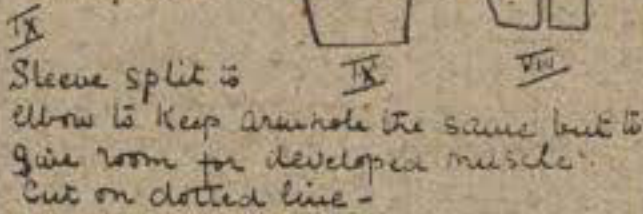 IX
Sleeve split to IX VIII
elbow to keep armhole the same but to
give room for developed muscle.
Cut on dotted line -